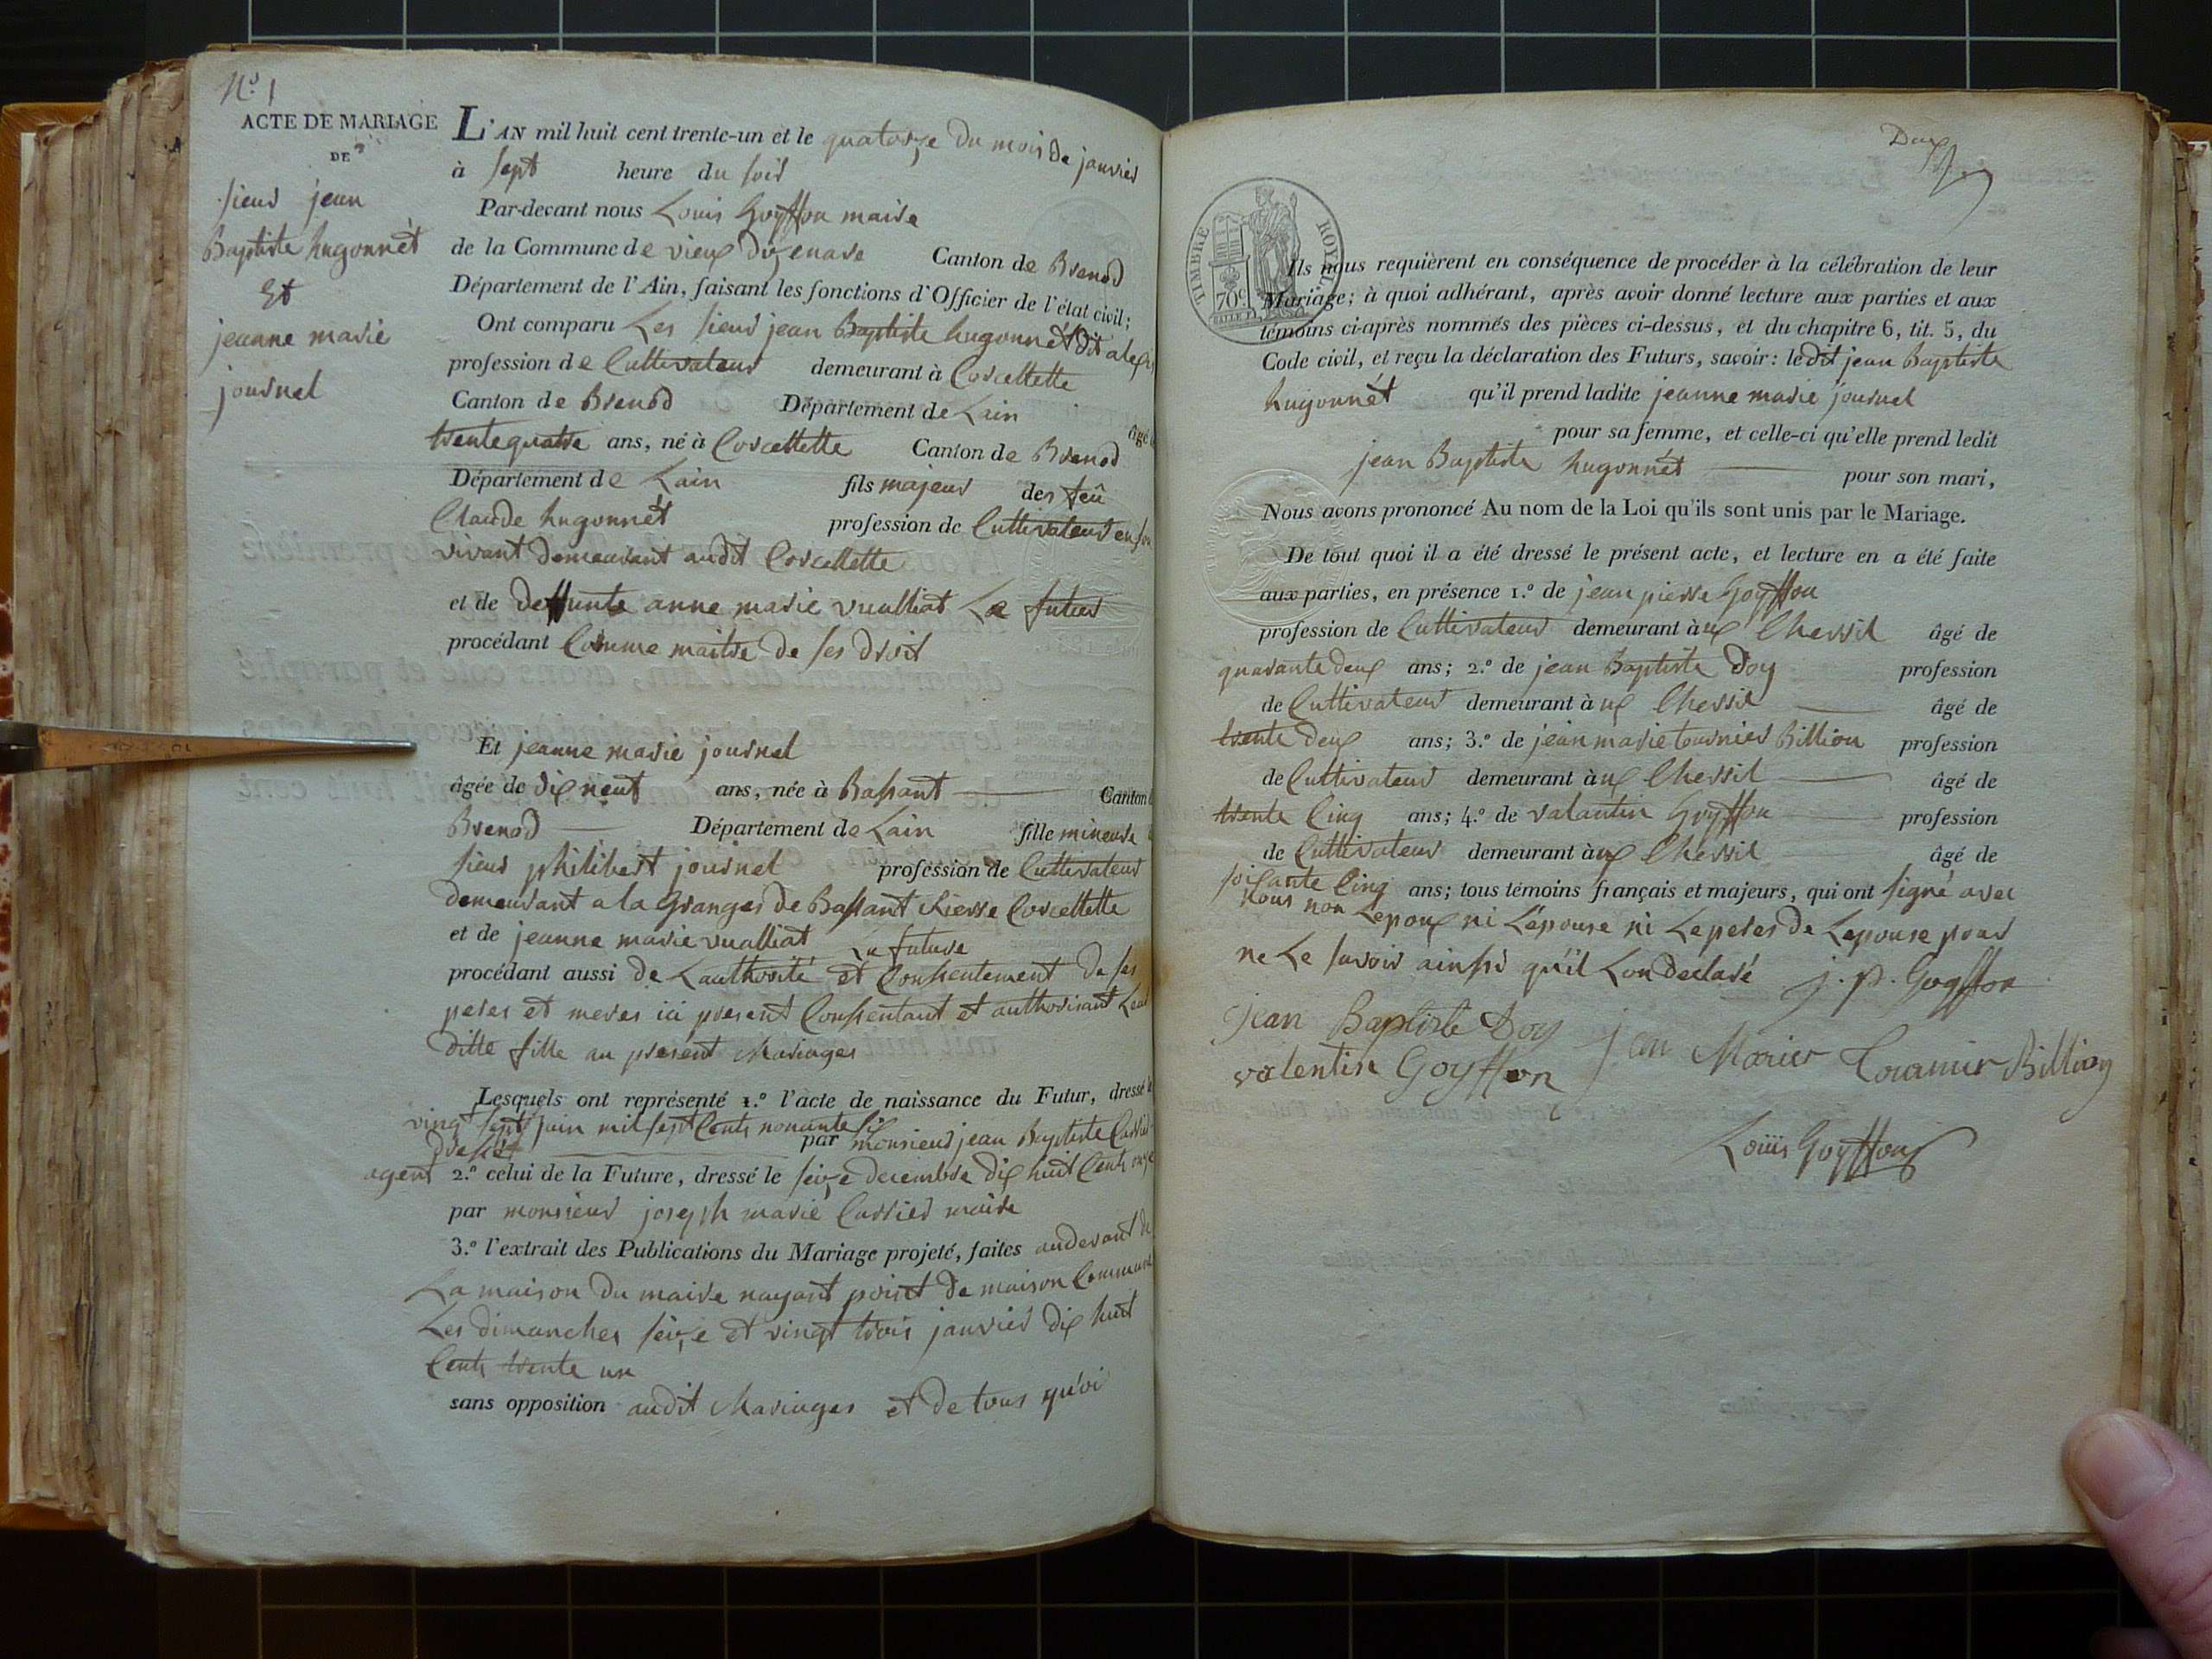 N.º 1
ACTE DE MARIAGE
DE
sieur jean
Baptiste hugonnét
Et
jeanne marie
journel
L'AN mil huit cent trente-un et le quatorze du mois de janvier
à sept heure du soir
Par-devant nous Louis Goyffon maire
de la Commune de vieux dizenave Canton de Brenod
Département de l'Ain, faisant les fonctions d'Officier de l'état civil;
Ont comparu Les sieur jean Baptiste hugonnét dit alexi
profession de Cultivateur demeurant à Corcellette
Canton de Brenod Département de Lain âgé
trente quatre ans, né à Corcellette Canton de Brenod
Département de Lain fils majeur des feû
Claude hugonnét profession de Cultivateur en son
vivant demeurant audit Corcellette
et de deffunte anne marie vualliat Le futur
procédant Comme maitre de ses droit
Et jeanne marie journel
âgée de dix neuf ans, née à Bassant Canton
Brenod Département de Lain fille mineure
sieur philibert journel profession de Cultivateur
demeurant a la Granges de Bassant Corcellette
et de jeanne marie vualliat La future
procédant aussi de Lauthorité et Consentement de ses
peres et meres ici present Consentant et authorisant Leur
ditte fille au present Mariages
Lesquels ont représenté 1.º l'acte de naissance du Futur, dressé
vingt sept juin mil sept Cents nonante six
par monsieur jean Baptiste
agent 2.º celui de la Future, dressé le seize decembre dix huit Cents onze
par monsieur joseph marie Carrier maire
3.º l'extrait des Publications du Mariage projeté, faites audevant de
La maison du maire nayant point de maison Commune
Les dimanches seize et vingt trois janvier dix huit
Cents trente un
sans opposition audit Mariages et de tous qu'oi
Deux
TIMBRE ROYAL
70c
Ils nous requièrent en conséquence de procéder à la célébration de leur
Mariage; à quoi adhérant, après avoir donné lecture aux parties et aux
témoins ci-après nommés des pièces ci-dessus, et du chapitre 6, tit. 5, du
Code civil, et reçu la déclaration des Futurs, savoir: ledit jean Baptiste
hugonnét qu'il prend ladite jeanne marie journel
pour sa femme, et celle-ci qu'elle prend ledit
jean Baptiste hugonnét pour son mari,
Nous avons prononcé Au nom de la Loi qu'ils sont unis par le Mariage.
De tout quoi il a été dressé le présent acte, et lecture en a été faite
aux parties, en présence 1.º de jean pierre Goyffon
profession de Cultivateur demeurant à ux Chevril âgé de
quarante deux ans; 2.º de jean Baptiste Doy profession
de Cultivateur demeurant à ux Chevril âgé de
trente deux ans; 3.º de jean marie tournier Billion profession
de Cultivateur demeurant à ux Chevril âgé de
trente Cinq ans; 4.º de valantin Goyffon profession
de Cultivateur demeurant à ux Chevril âgé de
soixante Cinq ans; tous témoins français et majeurs, qui ont signé avec
nous non Lepoux ni L'épouse ni Le peres de Lepouse pour
ne Le savoir ainssi qu'il Lon declaré j. p. Goyffon
jean Baptiste Doy jean Marier Tournier Billion
valentin Goyffon
Louis Goyffon